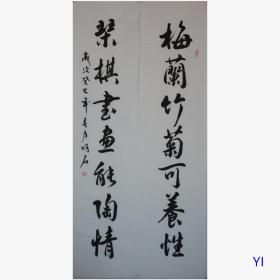 梅蘭竹菊可養性
琴棋書畫能陶情
歲次癸巳年春月明石
YI